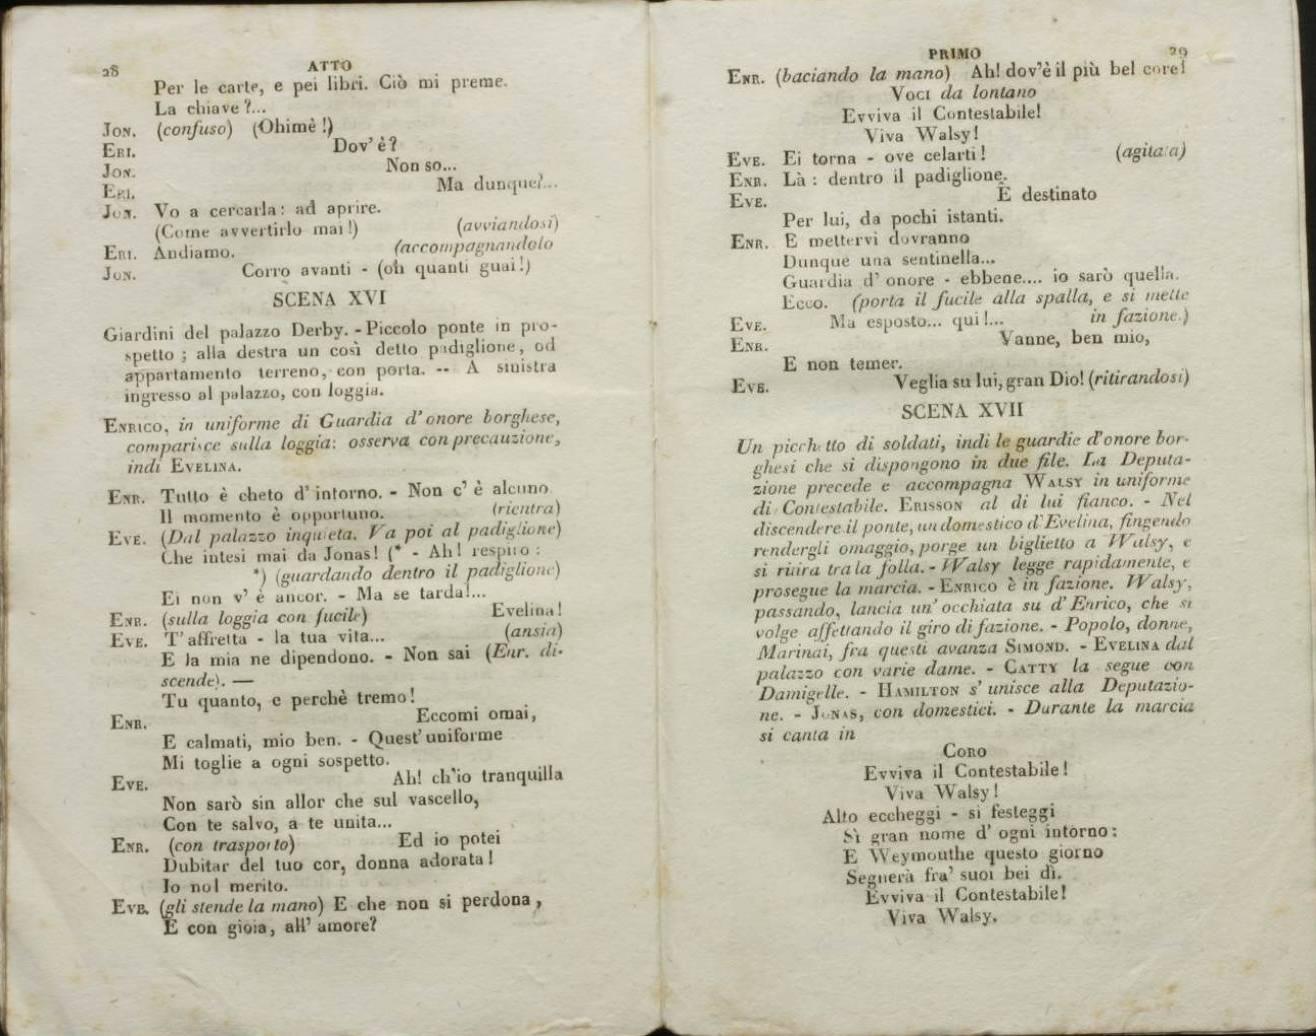 28
ATTO
Per le carte, e pei libri. Ciò mi preme.
La chiave?...
Jon. (confuso) (Ohimè!)
Eri. Dov'è?
Jon. Non so...
Eri. Ma dunque?...
Jon. Vo a cercarla: ad aprire.
(Come avvertirlo mai!) (avviandosi)
Eri. Andiamo. (accompagnandolo
Jon. Corro avanti - (oh quanti guai!)
SCENA XVI
Giardini del palazzo Derby. - Piccolo ponte in pro-
spetto; alla destra un così detto padiglione, od
appartamento terreno, con porta. -- A sinistra
ingresso al palazzo, con loggia.
Enrico, in uniforme di Guardia d'onore borghese,
comparisce sulla loggia: osserva con precauzione,
indi Evelina.
Enr. Tutto è cheto d'intorno. - Non c'è alcuno
Il momento è opportuno. (rientra)
Eve. (Dal palazzo inquieta. Va poi al padiglione)
Che intesi mai da Jonas! (* - Ah! respiro:
*) (guardando dentro il padiglione)
Ei non v'è ancor. - Ma se tarda!...
Enr. (sulla loggia con fucile) Evelina!
Eve. T'affretta - la tua vita... (ansia)
E la mia ne dipendono. - Non sai (Enr. di-
scende). —
Tu quanto, e perchè tremo!
Enr. Eccomi omai,
E calmati, mio ben. - Quest'uniforme
Mi toglie a ogni sospetto.
Eve. Ah! ch'io tranquilla
Non sarò sin allor che sul vascello,
Con te salvo, a te unita...
Enr. (con trasporto) Ed io potei
Dubitar del tuo cor, donna adorata!
Io nol merito.
Eve. (gli stende la mano) E che non si perdona,
E con gioia, all'amore?
PRIMO
29
Enr. (baciando la mano) Ah! dov'è il più bel core!
Voci da lontano
Evviva il Contestabile!
Viva Walsy!
Eve. Ei torna - ove celarti! (agitata)
Enr. Là: dentro il padiglione.
Eve. È destinato
Per lui, da pochi istanti.
Enr. E mettervi dovranno
Dunque una sentinella...
Guardia d'onore - ebbene.... io sarò quella.
Ecco. (porta il fucile alla spalla, e si mette
Eve. Ma esposto... qui!... in fazione.)
Enr. Vanne, ben mio,
E non temer.
Eve. Veglia su lui, gran Dio! (ritirandosi)
SCENA XVII
Un picchetto di soldati, indi le guardie d'onore bor-
ghesi che si dispongono in due file. La Deputa-
zione precede e accompagna Walsy in uniforme
di Contestabile. Erisson al di lui fianco. - Nel
discendere il ponte, un domestico d'Evelina, fingendo
rendergli omaggio, porge un biglietto a Walsy, e
si ritira tra la folla. - Walsy legge rapidamente, e
prosegue la marcia. - Enrico è in fazione. Walsy,
passando, lancia un'occhiata su d'Enrico, che si
volge affettando il giro di fazione. - Popolo, donne,
Marinai, fra questi avanza Simond. - Evelina dal
palazzo con varie dame. - Catty la segue con
Damigelle. - Hamilton s'unisce alla Deputazio-
ne. - Jonas, con domestici. - Durante la marcia
si canta in
Coro
Evviva il Contestabile!
Viva Walsy!
Alto eccheggi - si festeggi
Sì gran nome d'ogni intorno:
E Weymouthe questo giorno
Segnerà fra' suoi bei dì.
Evviva il Contestabile!
Viva Walsy.